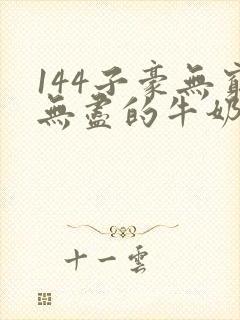 144子豪無窮
無盡的牛奶
十一雲